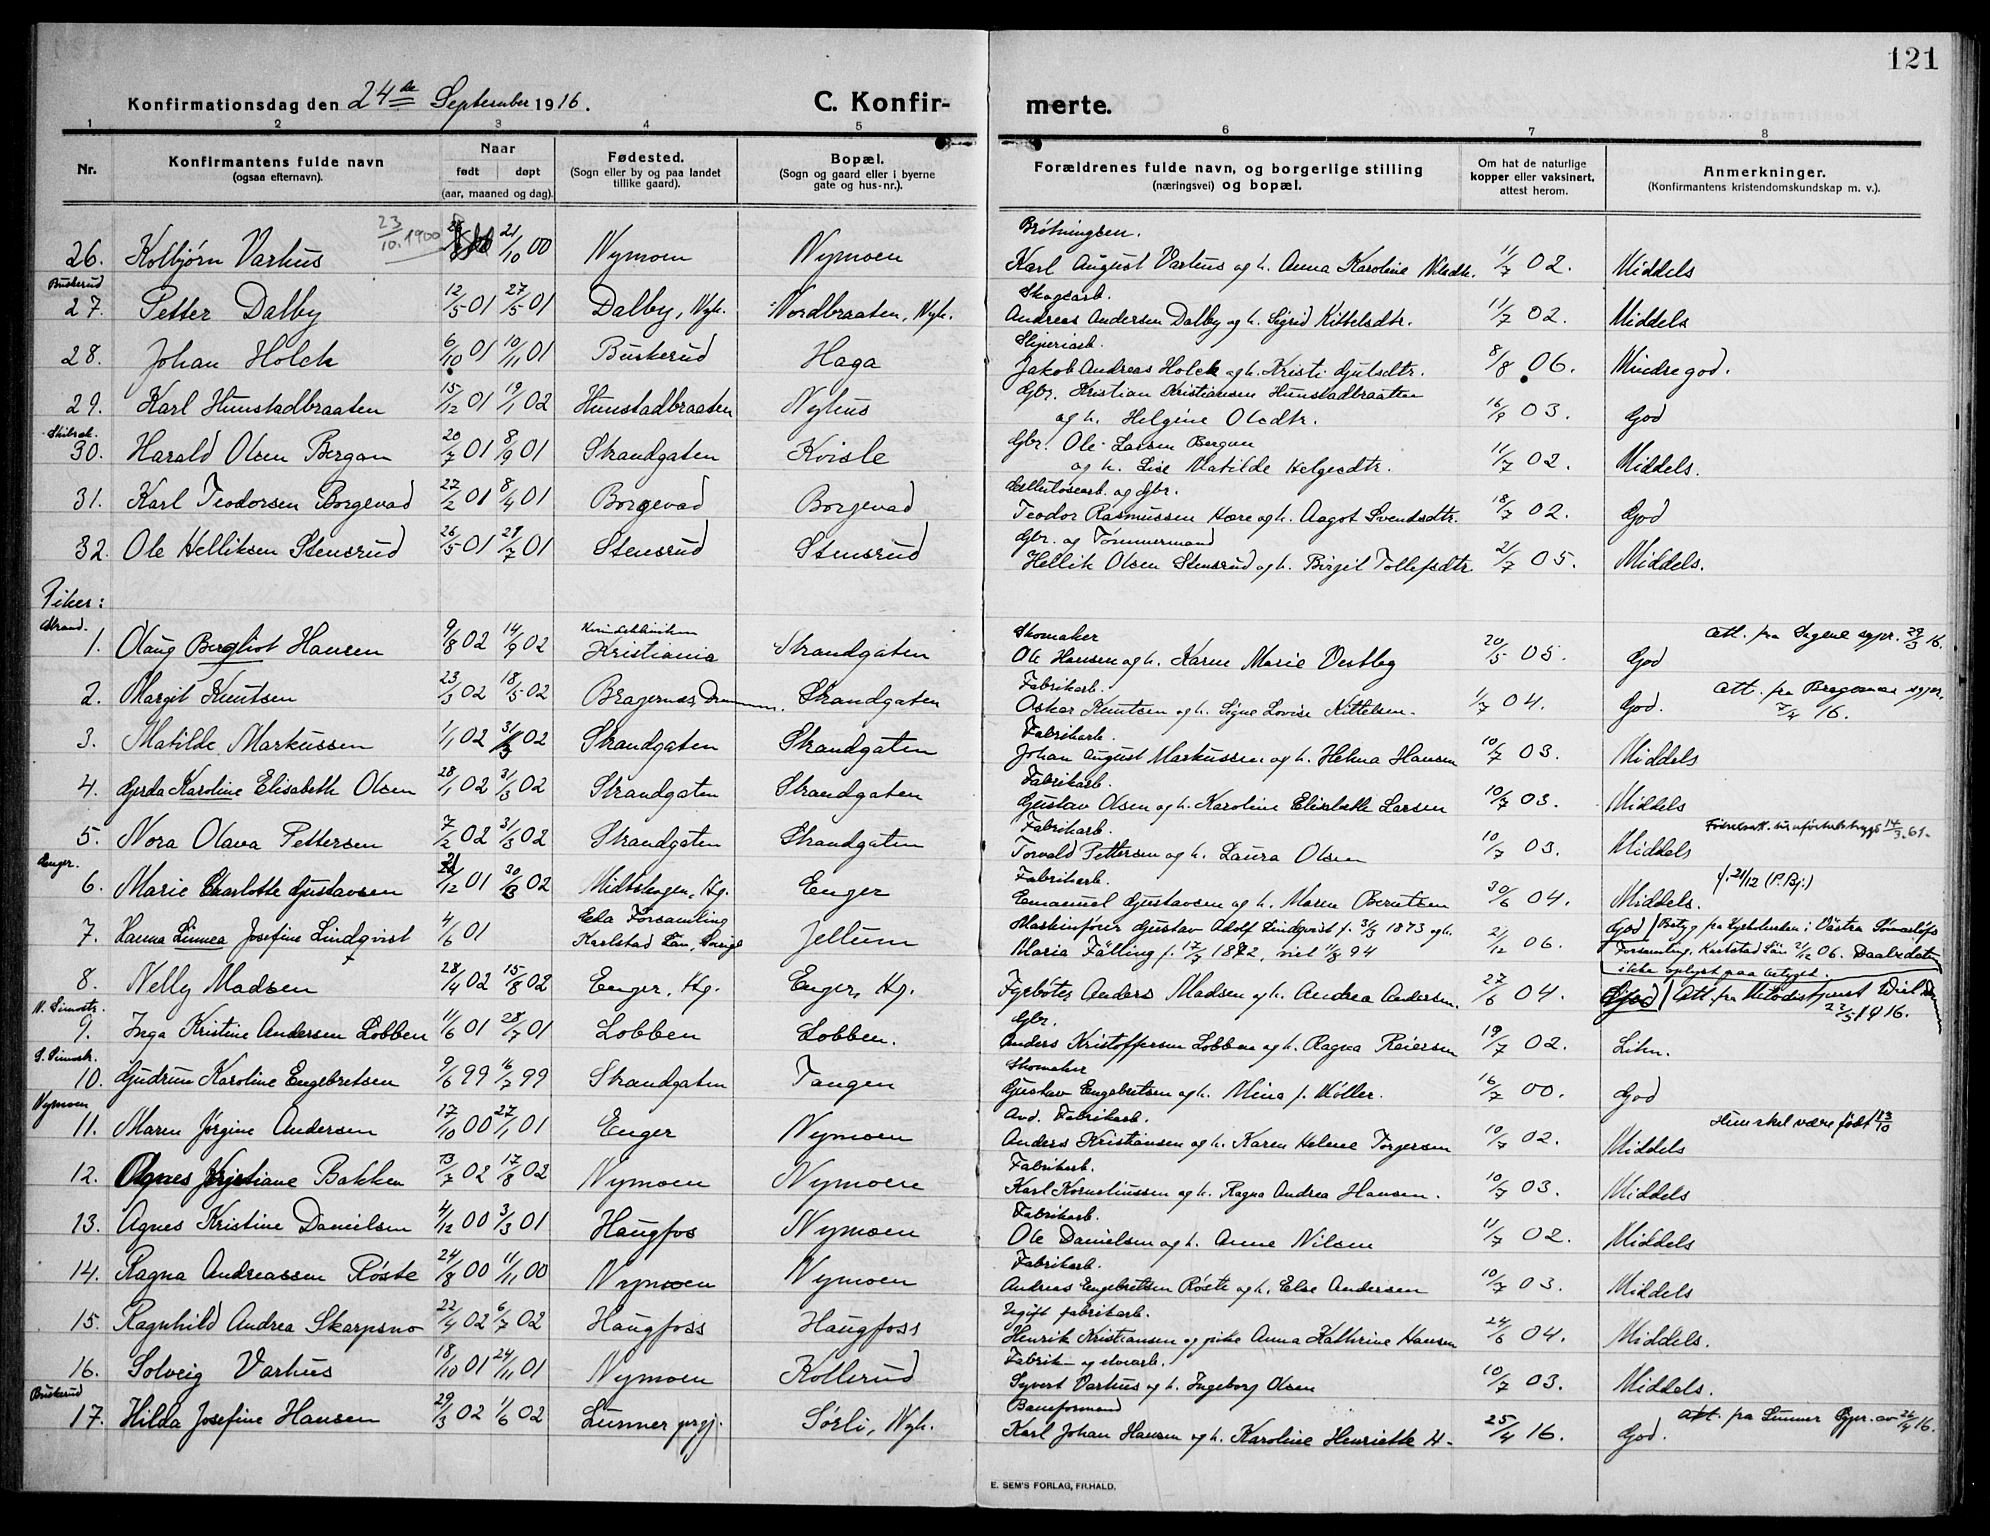 121
Konfirmationsdag den 24de September 1916. C. Konfir-merte.
1 2 3 4 5 6 7 8
Nr. Konfirmantens fulde navn (ogsaa efternavn). Naar født døpt (aar, maaned og dag). Fødested. (Sogn eller by og paa landet tillike gaard). Bopæl. (Sogn og gaard eller i byerne gate og hus-nr.). Forældrenes fulde navn, og borgerlige stilling (næringsvei) og bopæl. Om hat de naturlige kopper eller vaksinert, attest herom. Anmerkninger. (Konfirmantens kristendomskundskap m. v.).
23/10.1900
26. Kolbjørn Varhus 21/10 00 Nymoen Nymoen Karl August Varhus og h. Anna Karoline 11/7 02. Middels
Buskerud Skogsarb.
27. Petter Dalby 12/5 01 27/5 01 Dalby, Nyh. Nordbraaten, Nyh. Andreas Andersen Dalby og h. Sigrid Kittelsdtr. 11/7 02. Middels
Sliperiarb.
28. Johan Holck 6/10 01 10/11 01 Buskerud Haga Jakob Andreas Holck og h. Kristi 8/8 06. Mindre god.
Gbr. Kristian Kristiansen Hunstadbraaten
29. Karl Hunstadbraaten 15/12 01 19/1 02 Hunstadbraaten Nyhus og h. Helgine Olsdtr. 16/9 03. God
Gbr. Ole Larsen Bergan
30. Harald Olsen Bergan 20/7 01 8/9 01 Strandgaten Kvisle og h. Lise Matilde Helgesdtr. 11/7 02. Middels.
Cellulosearb. og Gbr.
31. Karl Teodorsen Borgevad 27/2 01 8/4 01 Borgevad Borgevad Teodor Rasmussen Hære og h. Aagot Svendsdtr. 18/7 02. God
Gbr. og Tømmermand
32. Ole Helliksen Stensrud 26/5 01 28/7 01 Stensrud Stensrud Hellik Olsen Stensrud og h. Birgit Tollefsdtr. 21/7 05. Middels.
Piker:
Strand. Kvindeklinikken Skomaker Att. fra Sagene sgpr. 29/3 16.
1. Olaug Bergliot Hansen 9/8 02 14/9 02 Kristiania Strandgaten Ole Hansen og h. Karen Marie Vestby 20/5 05. God
Fabrikarb. Att. fra Bragernes sgpr.
2. Margit Knutsen 23/3 02 18/5 02 Bragernes, Drammen. Strandgaten Oskar Knutsen og h. Signe Lovise Kittelsen. 1/7 04. God. 7/4 16.
Fabrikarb.
3. Matilde Markussen 1/1 02 31/3 02 Strandgaten Strandgaten Johan August Markussen og h. Helma Hansen 10/7 03. Middels
Fabrikarb.
4. Gerda Karoline Elisabeth Olsen 28/1 02 31/3 02 Strandgaten Strandgaten Gustav Olsen og h. Karoline Elisabeth Larsen 10/7 03. Middels
Fabrikarb. 14/3.61.
5. Nora Olava Pettersen 7/2 02 31/3 02 Strandgaten Strandgaten Torvald Pettersen og h. Laura Olsen 10/7 03. Middels
Enger. Fabrikarb. f. 21/12 (P. Bj.)
6. Marie Charlotte Gustavsen 21/12 01 30/3 02 Midtskogen, Hg. Enger Emanuel Gustavsen og h. Maren Berntsen 30/6 04. Middels.
Eda Församling Maskinfører Gustav Adolf Lindqvist f. 3/3 1873 og h. God / Betyg fra Kyrkoherden i Västra
7. Hanna Linnea Josefine Lindqvist 4/6 01 Karlstad Län, Sverige Jellum Maria Fälling f. 17/7 1872, viet 1/8 94 21/12 06. Forsamling, Karlstad Län 21/12 06. Daabsdaten ikke oplyst paa betyget.
8. Nelly Madsen 28/4 02 15/8 02 Enger, Hg. Enger, Hg. Fyrbøter Anders Madsen og h. Andrea Andersen. 27/6 04. God / Att. fra Metodistprest
22/5 1916.
N. Simostr. Gbr.
9. Inga Kristine Andersen Lobben 11/6 01 28/7 01 Lobben Lobben. Anders Kristoffersen Lobben og h. Ragna Reiersen 19/7 02.
S. Simostr. Skomaker
10. Gudrun Karoline Engebretsen 9/6 99 16/7 99 Strandgaten Tangen Gustav Engebretsen og h. Mina f. Møller. 16/7 00. God
Nymoen Avd. Fabrikarb. Hun skal være født 13/10
11. Maren Jørgine Andersen 17/10 00 27/1 01 Enger Nymoen Anders Kristiansen og h. Karen Helene Torgersen 10/7 02. Middels
Fabrikarb.
12. Agnes Kristiane Bakken 13/7 02 17/8 02 Nymoen Nymoen Karl Korneliussen og h. Ragna Andrea Hansen. 10/7 03. Middels
Fabrikarb.
13. Agnes Kristine Danielsen 4/12 00 3/3 01 Haugfos Nymoen Ole Danielsen og h. Anne Nilsen 11/7 02. Middels
Fabrikarb.
14. Ragna Andreassen Røste 24/8 00 11/11 00 Nymoen Nymoen Andreas Engebretsen Røste og h. Else Andersen 10/7 03. Middels
Ugift fabrikarb.
15. Ragnhild Andrea Skarpsno 22/4 02 6/7 02 Haugfoss Haugfoss Henrik Kristiansen og pike Anna Kathrine Hansen 24/6 04. Middels.
Fabrik- og elvearb.
16. Solveig Varhus 18/10 01 24/11 01 Nymoen Kollerud Syvert Varhus og h. Ingeborg Olsen 10/7 03. Middels.
Buskerud Baneformand Att. fra Lunner Sgpr. av 26/4 16.
17. Hilda Josefine Hansen 29/3 02 1/6 02 Lunner prgj. Sørli, Nyh. Karl Johan Hansen og h. Karoline Henriette H- 25/4 16. God.
E. SEM'S FORLAG, FR.HALD.